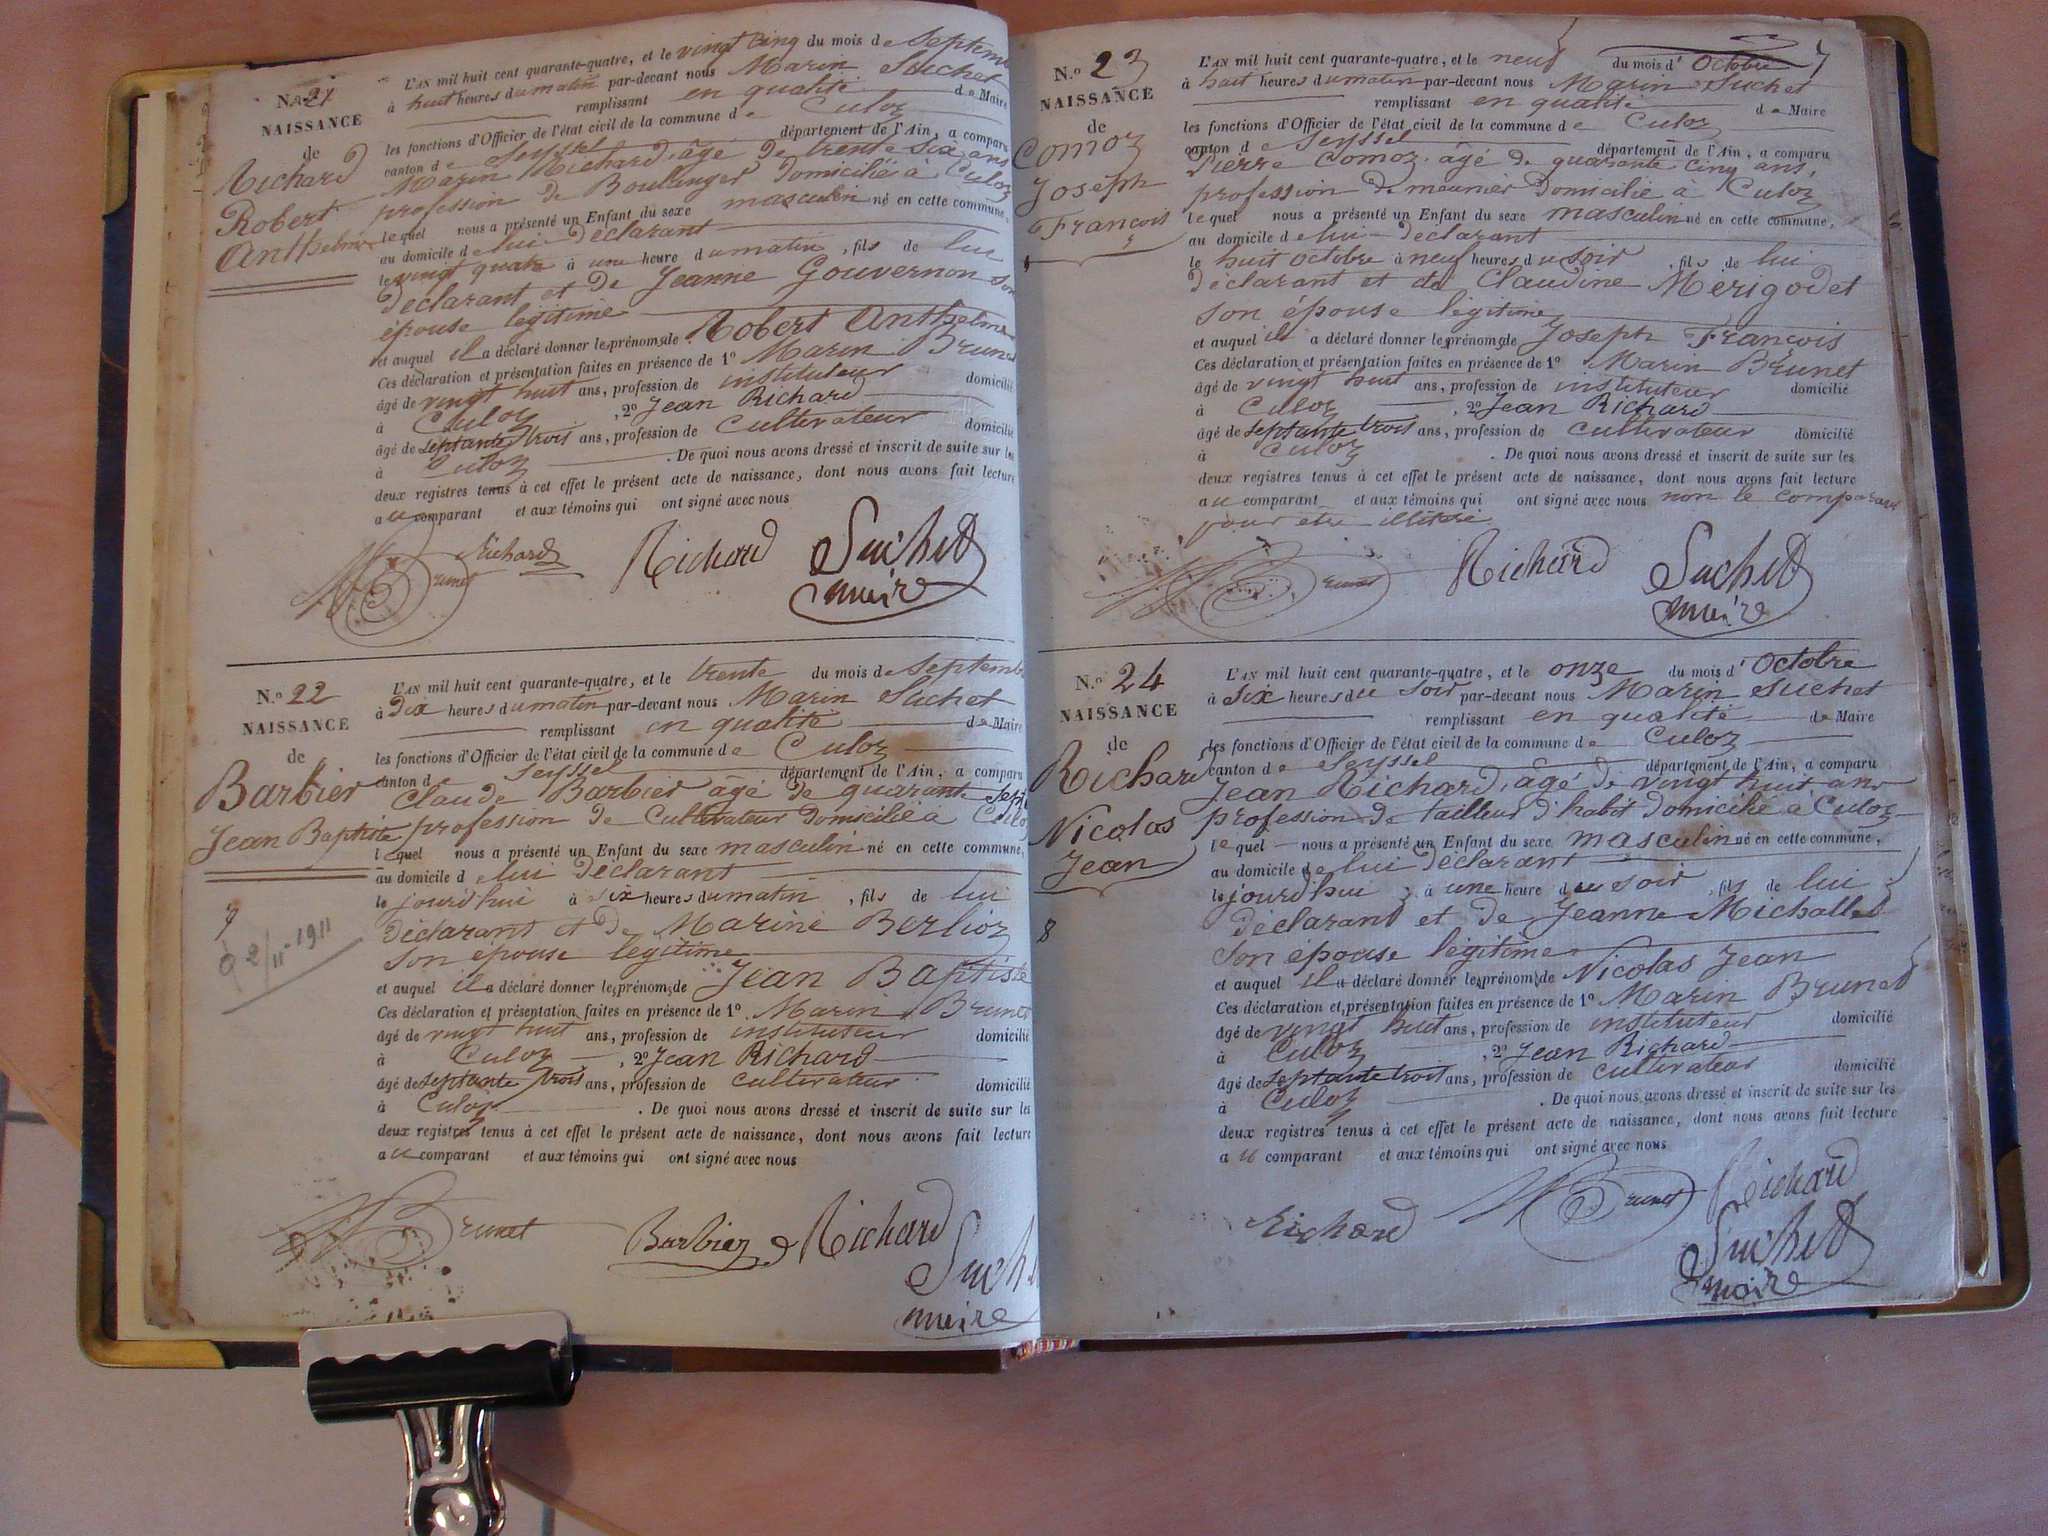 N.o 21
NAISSANCE
de
Richard
Robert
Anthelme
L'AN mil huit cent quarante-quatre, et le vingt cinq du mois de Septem
à huit heures du matin par-devant nous Marin Suchet
remplissant en qualité de Maire
les fonctions d'Officier de l'état civil de la commune de Culoz
canton de Seyssel département de l'Ain, a comparu
Marin Richard, âgé de trente six ans
profession de Boullanger domicilié à Culoz
lequel nous a présenté un Enfant du sexe masculin né en cette commune,
au domicile de lui déclarant
le vingt quatre à une heure du matin, fils de lui
déclarant et de Jeanne Gouvernon son
épouse légitime
et auquel il a déclaré donner les prénoms de Robert Anthelme
Ces déclaration et présentation faites en présence de 1o Marin Brunet
âgé de vingt huit ans, profession de instituteur domicilié
à Culoz, 2o Jean Richard
âgé de septante trois ans, profession de cultivateur domicilié
à Culoz. De quoi nous avons dressé et inscrit de suite sur les
deux registres tenus à cet effet le présent acte de naissance, dont nous avons fait lecture
au comparant et aux témoins qui ont signé avec nous
Brunet Richard Richard Suchet
maire
N.o 22
NAISSANCE
de
Barbier
Jean Baptiste
2/11-1911
L'AN mil huit cent quarante-quatre, et le trente du mois de Septemb
à Dix heures du matin par-devant nous Marin Suchet
remplissant en qualité de Maire
les fonctions d'Officier de l'état civil de la commune de Culoz
canton de Seyssel département de l'Ain, a comparu
Claude Barbier âgé de quarante sept
profession de Cultivateur domicilié à Culoz
lequel nous a présenté un Enfant du sexe masculin né en cette commune,
au domicile de lui déclarant
le jourd'hui à six heures du matin, fils de lui
déclarant et de Marine Berlioz
son épouse légitime
et auquel il a déclaré donner les prénoms de Jean Baptiste
Ces déclaration et présentation faites en présence de 1o Marin Brunet
âgé de vingt huit ans, profession de instituteur domicilié
à Culoz, 2o Jean Richard
âgé de septante trois ans, profession de cultivateur domicilié
à Culoz. De quoi nous avons dressé et inscrit de suite sur les
deux registres tenus à cet effet le présent acte de naissance, dont nous avons fait lecture
au comparant et aux témoins qui ont signé avec nous
Brunet Barbier Richard
Such
maire
7
N.o 23
NAISSANCE
de
Comoz
Joseph
François
L'AN mil huit cent quarante-quatre, et le neuf du mois d'Octobre
à huit heures du matin par-devant nous Marin Suchet
remplissant en qualité de Maire
les fonctions d'Officier de l'état civil de la commune de Culoz
canton de Seyssel département de l'Ain, a comparu
Pierre Comoz, âgé de quarante cinq ans,
profession de meunier domicilié à Culoz
lequel nous a présenté un Enfant du sexe masculin né en cette commune,
au domicile de lui déclarant
le huit octobre à neuf heures du soir, fils de lui
déclarant et de Claudine Mérigodet
son épouse légitime
et auquel il a déclaré donner les prénoms de Joseph François
Ces déclaration et présentation faites en présence de 1o Marin Brunet
âgé de vingt huit ans, profession de instituteur domicilié
à Culoz, 2o Jean Richard
âgé de septante trois ans, profession de cultivateur domicilié
à Culoz. De quoi nous avons dressé et inscrit de suite sur les
deux registres tenus à cet effet le présent acte de naissance, dont nous avons fait lecture
au comparant et aux témoins qui ont signé avec nous non le comparant
pour être illitéré
Brunet Richard Suchet
maire
N.o 24
NAISSANCE
de
Richard
Nicolas
Jean
8
L'AN mil huit cent quarante-quatre, et le onze du mois d'Octobre
à Six heures du soir par-devant nous Marin Suchet
remplissant en qualité de Maire
les fonctions d'Officier de l'état civil de la commune de Culoz
canton de Seyssel département de l'Ain, a comparu
Jean Richard, âgé de vingt huit ans
profession de tailleur d'habit domicilié à Culoz
lequel nous a présenté un Enfant du sexe masculin né en cette commune,
au domicile de lui déclarant
le jourd'hui à une heure du soir, fils de lui
déclarant et de Jeanne Michallet
son épouse légitime
et auquel il a déclaré donner les prénoms de Nicolas Jean
Ces déclaration et présentation faites en présence de 1o Marin Brunet
âgé de vingt huit ans, profession de instituteur domicilié
à Culoz, 2o Jean Richard
âgé de septante trois ans, profession de cultivateur domicilié
à Culoz. De quoi nous avons dressé et inscrit de suite sur les
deux registres tenus à cet effet le présent acte de naissance, dont nous avons fait lecture
au comparant et aux témoins qui ont signé avec nous
Richard Brunet Richard
Suchet
maire